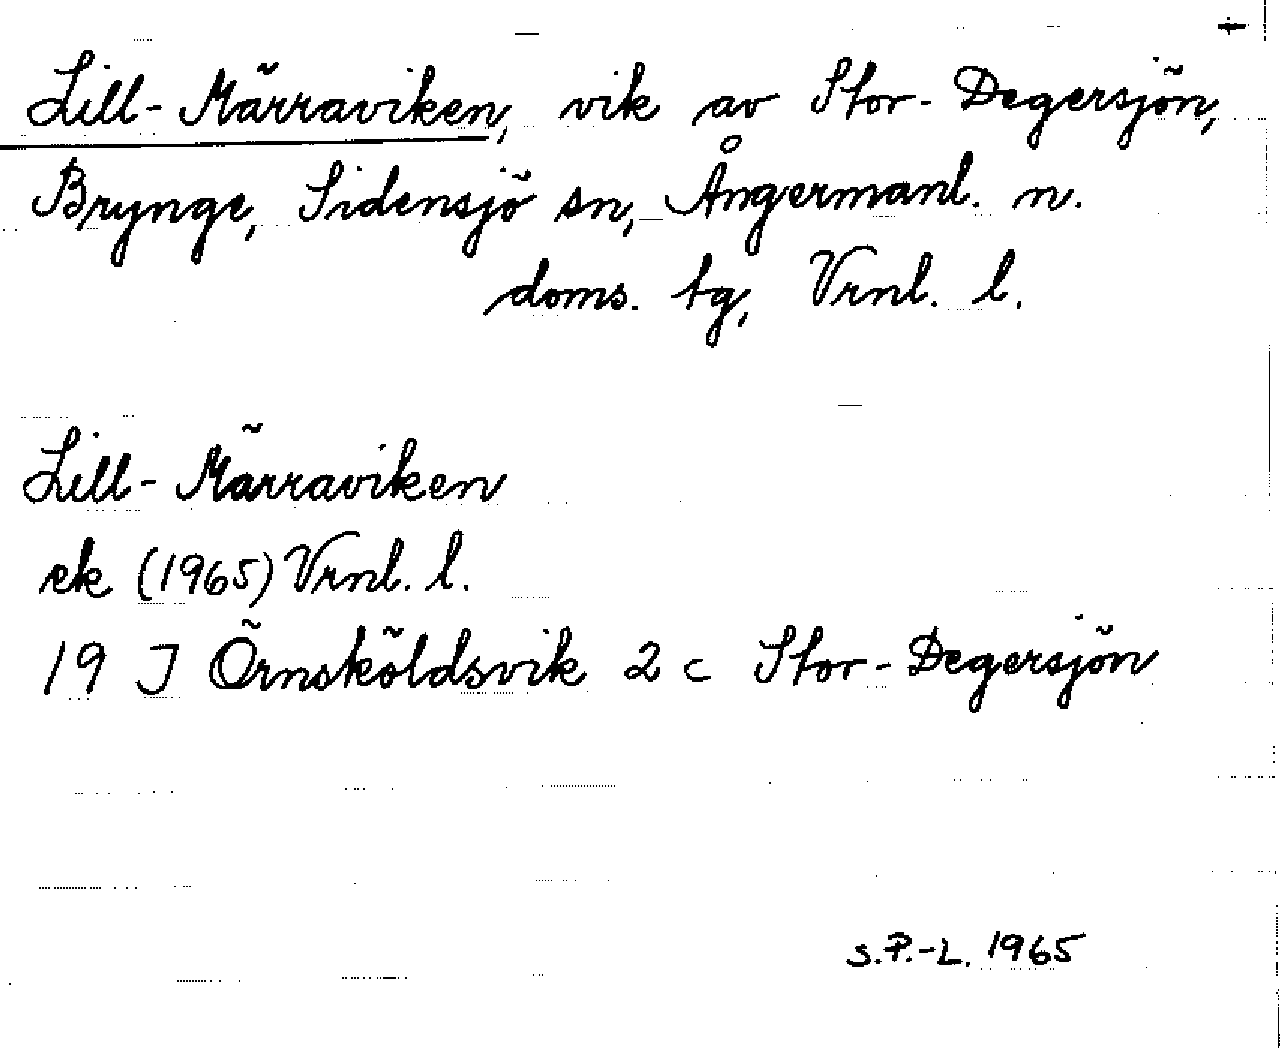 Lill-Märraviken, vik av Stor-Degersjön,
Brynge, Sidensjö sn, Ångermanl. n.
doms. tg, Vrnl. l.
Lill-Märraviken
ek (1965) Vrnl. l.
19 J Örnsköldsvik 2 c Stor-Degersjön
S.P.-L. 1965